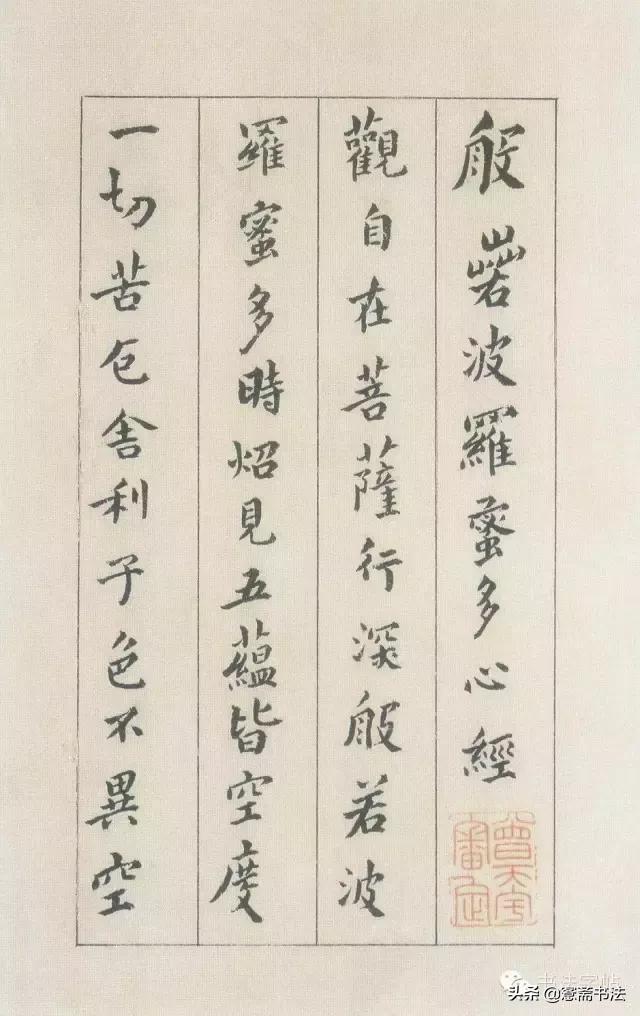 般若波羅蜜多心經
觀自在菩薩行深般若波
羅蜜多時炤見五蘊皆空度
一切苦厄舍利子色不異空
书法字帖
头条@愙斋书法